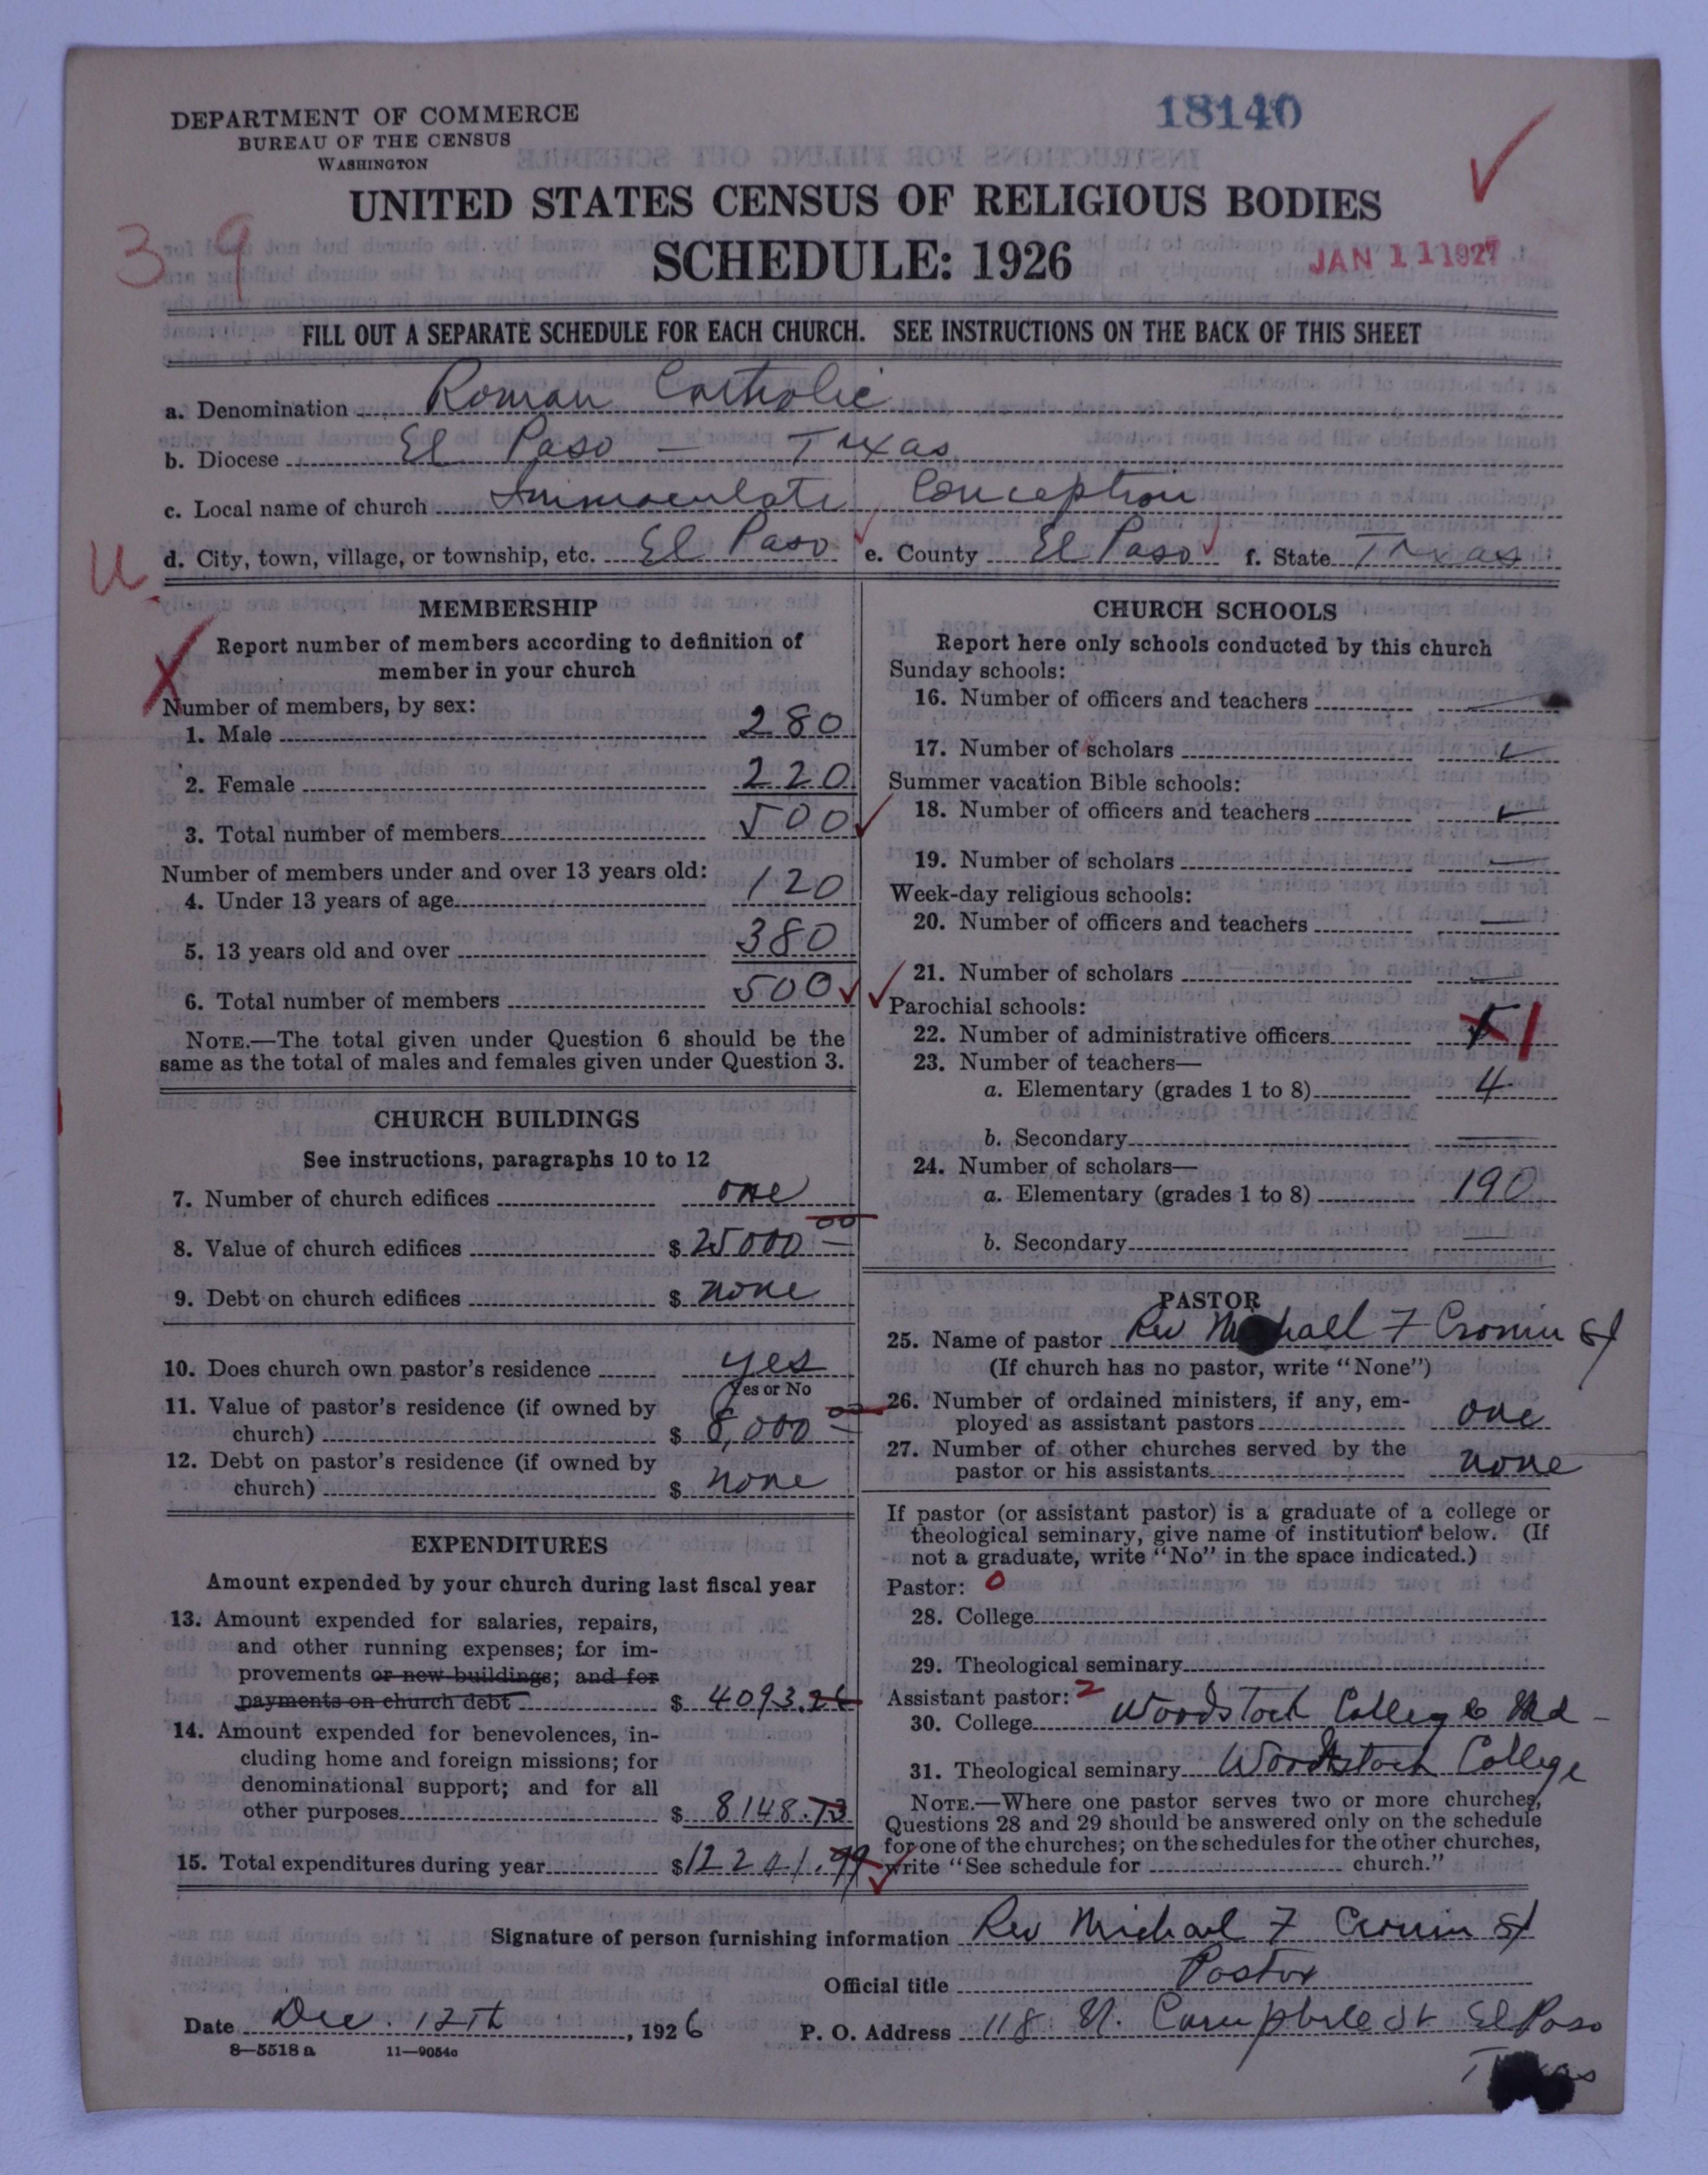 DEPARTMENT OF COMMERCE
BUREAU OF THE CENSUS
WASHINGTON
18140
UNITED STATES CENSUS OF RELIGIOUS BODIES
SCHEDULE: 1926
39
JAN 11 1927
FILL OUT A SEPARATE SCHEDULE FOR EACH CHURCH. SEE INSTRUCTIONS ON THE BACK OF THIS SHEET
a. Denomination Roman Catholic
b. Diocese El Paso – Texas
c. Local name of church Immaculate Conception
d. City, town, village, or township, etc. El Paso e. County El Paso f. State Texas
U
MEMBERSHIP
Report number of members according to definition of
member in your church
Number of members, by sex:
1. Male 280
2. Female 220
3. Total number of members 500
Number of members under and over 13 years old:
4. Under 13 years of age 120
5. 13 years old and over 380
6. Total number of members 500
NOTE.—The total given under Question 6 should be the
same as the total of males and females given under Question 3.
CHURCH BUILDINGS
See instructions, paragraphs 10 to 12
7. Number of church edifices one
8. Value of church edifices $ 25000 00
9. Debt on church edifices $ none
10. Does church own pastor's residence yes
Yes or No
11. Value of pastor's residence (if owned by
church) $ 8,000 00
12. Debt on pastor's residence (if owned by
church) $ none
EXPENDITURES
Amount expended by your church during last fiscal year
13. Amount expended for salaries, repairs,
and other running expenses; for im-
provements or new buildings; and for
payments on church debt $ 4093.26
14. Amount expended for benevolences, in-
cluding home and foreign missions; for
denominational support; and for all
other purposes $ 8148.73
15. Total expenditures during year $ 12241.99
CHURCH SCHOOLS
Report here only schools conducted by this church
Sunday schools:
16. Number of officers and teachers —
17. Number of scholars
Summer vacation Bible schools:
18. Number of officers and teachers
19. Number of scholars —
Week-day religious schools:
20. Number of officers and teachers —
21. Number of scholars —
Parochial schools:
22. Number of administrative officers 1
23. Number of teachers—
a. Elementary (grades 1 to 8) 4
b. Secondary —
24. Number of scholars—
a. Elementary (grades 1 to 8) 190
b. Secondary —
PASTOR
25. Name of pastor Rev Michall F Cronin SJ
(If church has no pastor, write "None")
26. Number of ordained ministers, if any, em-
ployed as assistant pastors one
27. Number of other churches served by the
pastor or his assistants none
If pastor (or assistant pastor) is a graduate of a college or
theological seminary, give name of institution below. (If
not a graduate, write "No" in the space indicated.)
Pastor: 0
28. College
29. Theological seminary
Assistant pastor: 2
30. College Woodstock College Md –
31. Theological seminary Woodstock College
NOTE.—Where one pastor serves two or more churches,
Questions 28 and 29 should be answered only on the schedule
for one of the churches; on the schedules for the other churches,
write "See schedule for church."
Signature of person furnishing information Rev Michael F Cronin SJ
Official title Pastor
Date Dec. 12th, 1926 P. O. Address 118 N. Campbell St El Paso
Texas
8—5518a 11—9054c